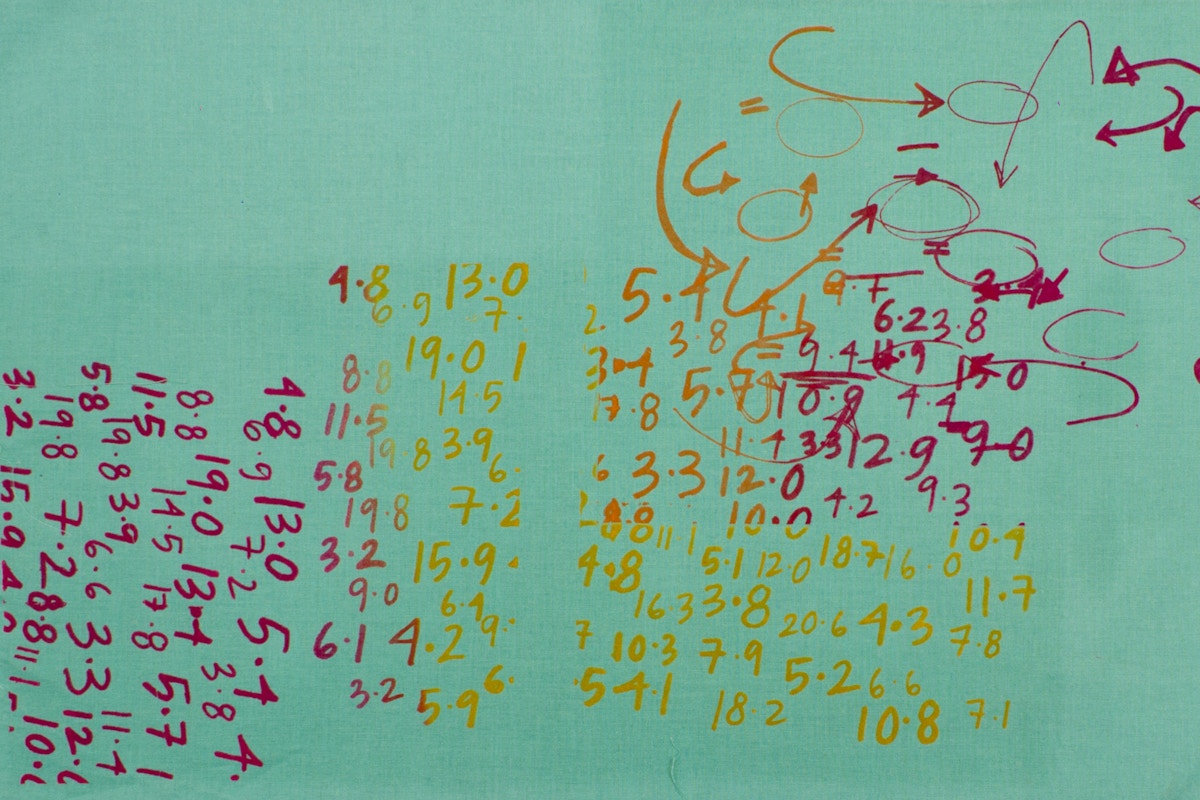 4.8 13.0
6.9 7.
5.4 4.1 9.7 3.4
2. 3.8 6.23.8
8.8 19.0 1 3.4 9.4 11.9 15.0
14.5 17.8 5.7 10.9 4.4
11.5 19.8 3.9 11.4 3.3 12.9 9.0
5.8 6. 6 3.3 12.0
19.8 7.2 4.2 9.3
10.0
3.2 15.9. 4.8 11.1 5.1 12.0 18.7 16.0 10.4
9.0 6.4 16.3 3.8 20.6 4.3 11.7
6.1 4.2 9. 7 10.3 7.9 7.8
3.2 5.9 6. .5 4.1 5.2 6.6
18.2 10.8 7.1
4.8 13.0 5.4 4.
6.9 7.2 3.8
8.8 19.0 13.4 5.7 1
11.5 14.5 17.8 11.4
19.8 3.9
5.8 19.8 6.6 3.3 12.
19.8 7.2 8.8 11.1 10.
3.2 15.9